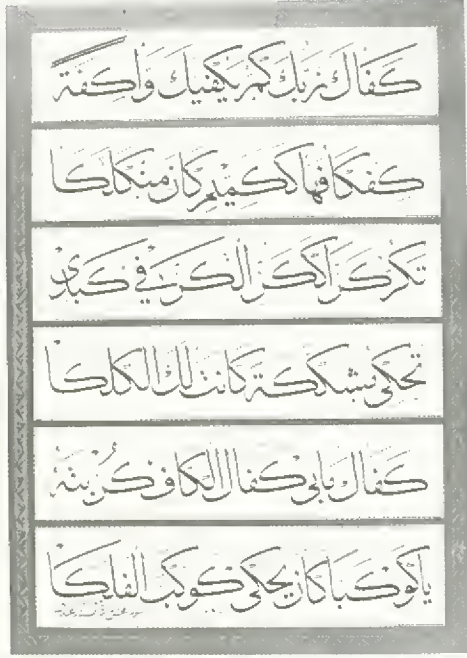 كفاك ربك كم يكفيك واكفة
كفكافها ككمين كان منكلكا
تكر كرا ككر الكر في كبدي
تحكى مشككة كانت لك الكلكا
كفاك مابي كفاك الكاف كربته
يا كوكبا كان يحكى كوكب الفلكا